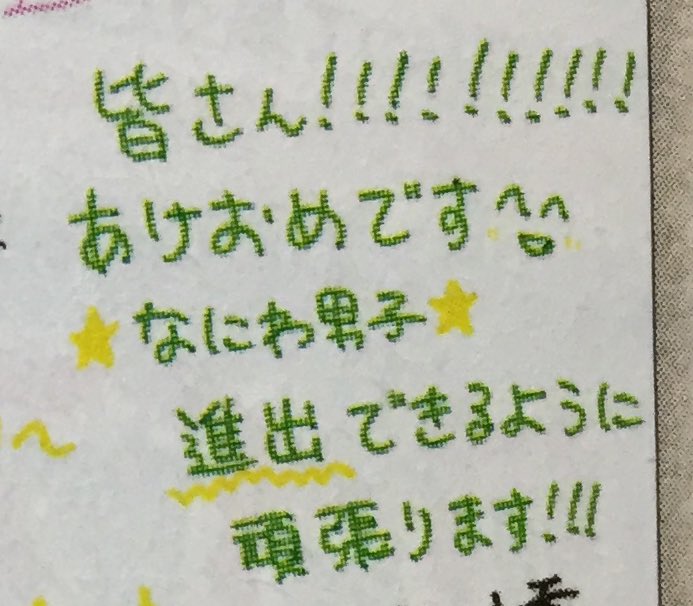 皆さん!!!!!!!!!!
あけおめです^^
★なにわ男子★
進出できるように
頑張ります!!!